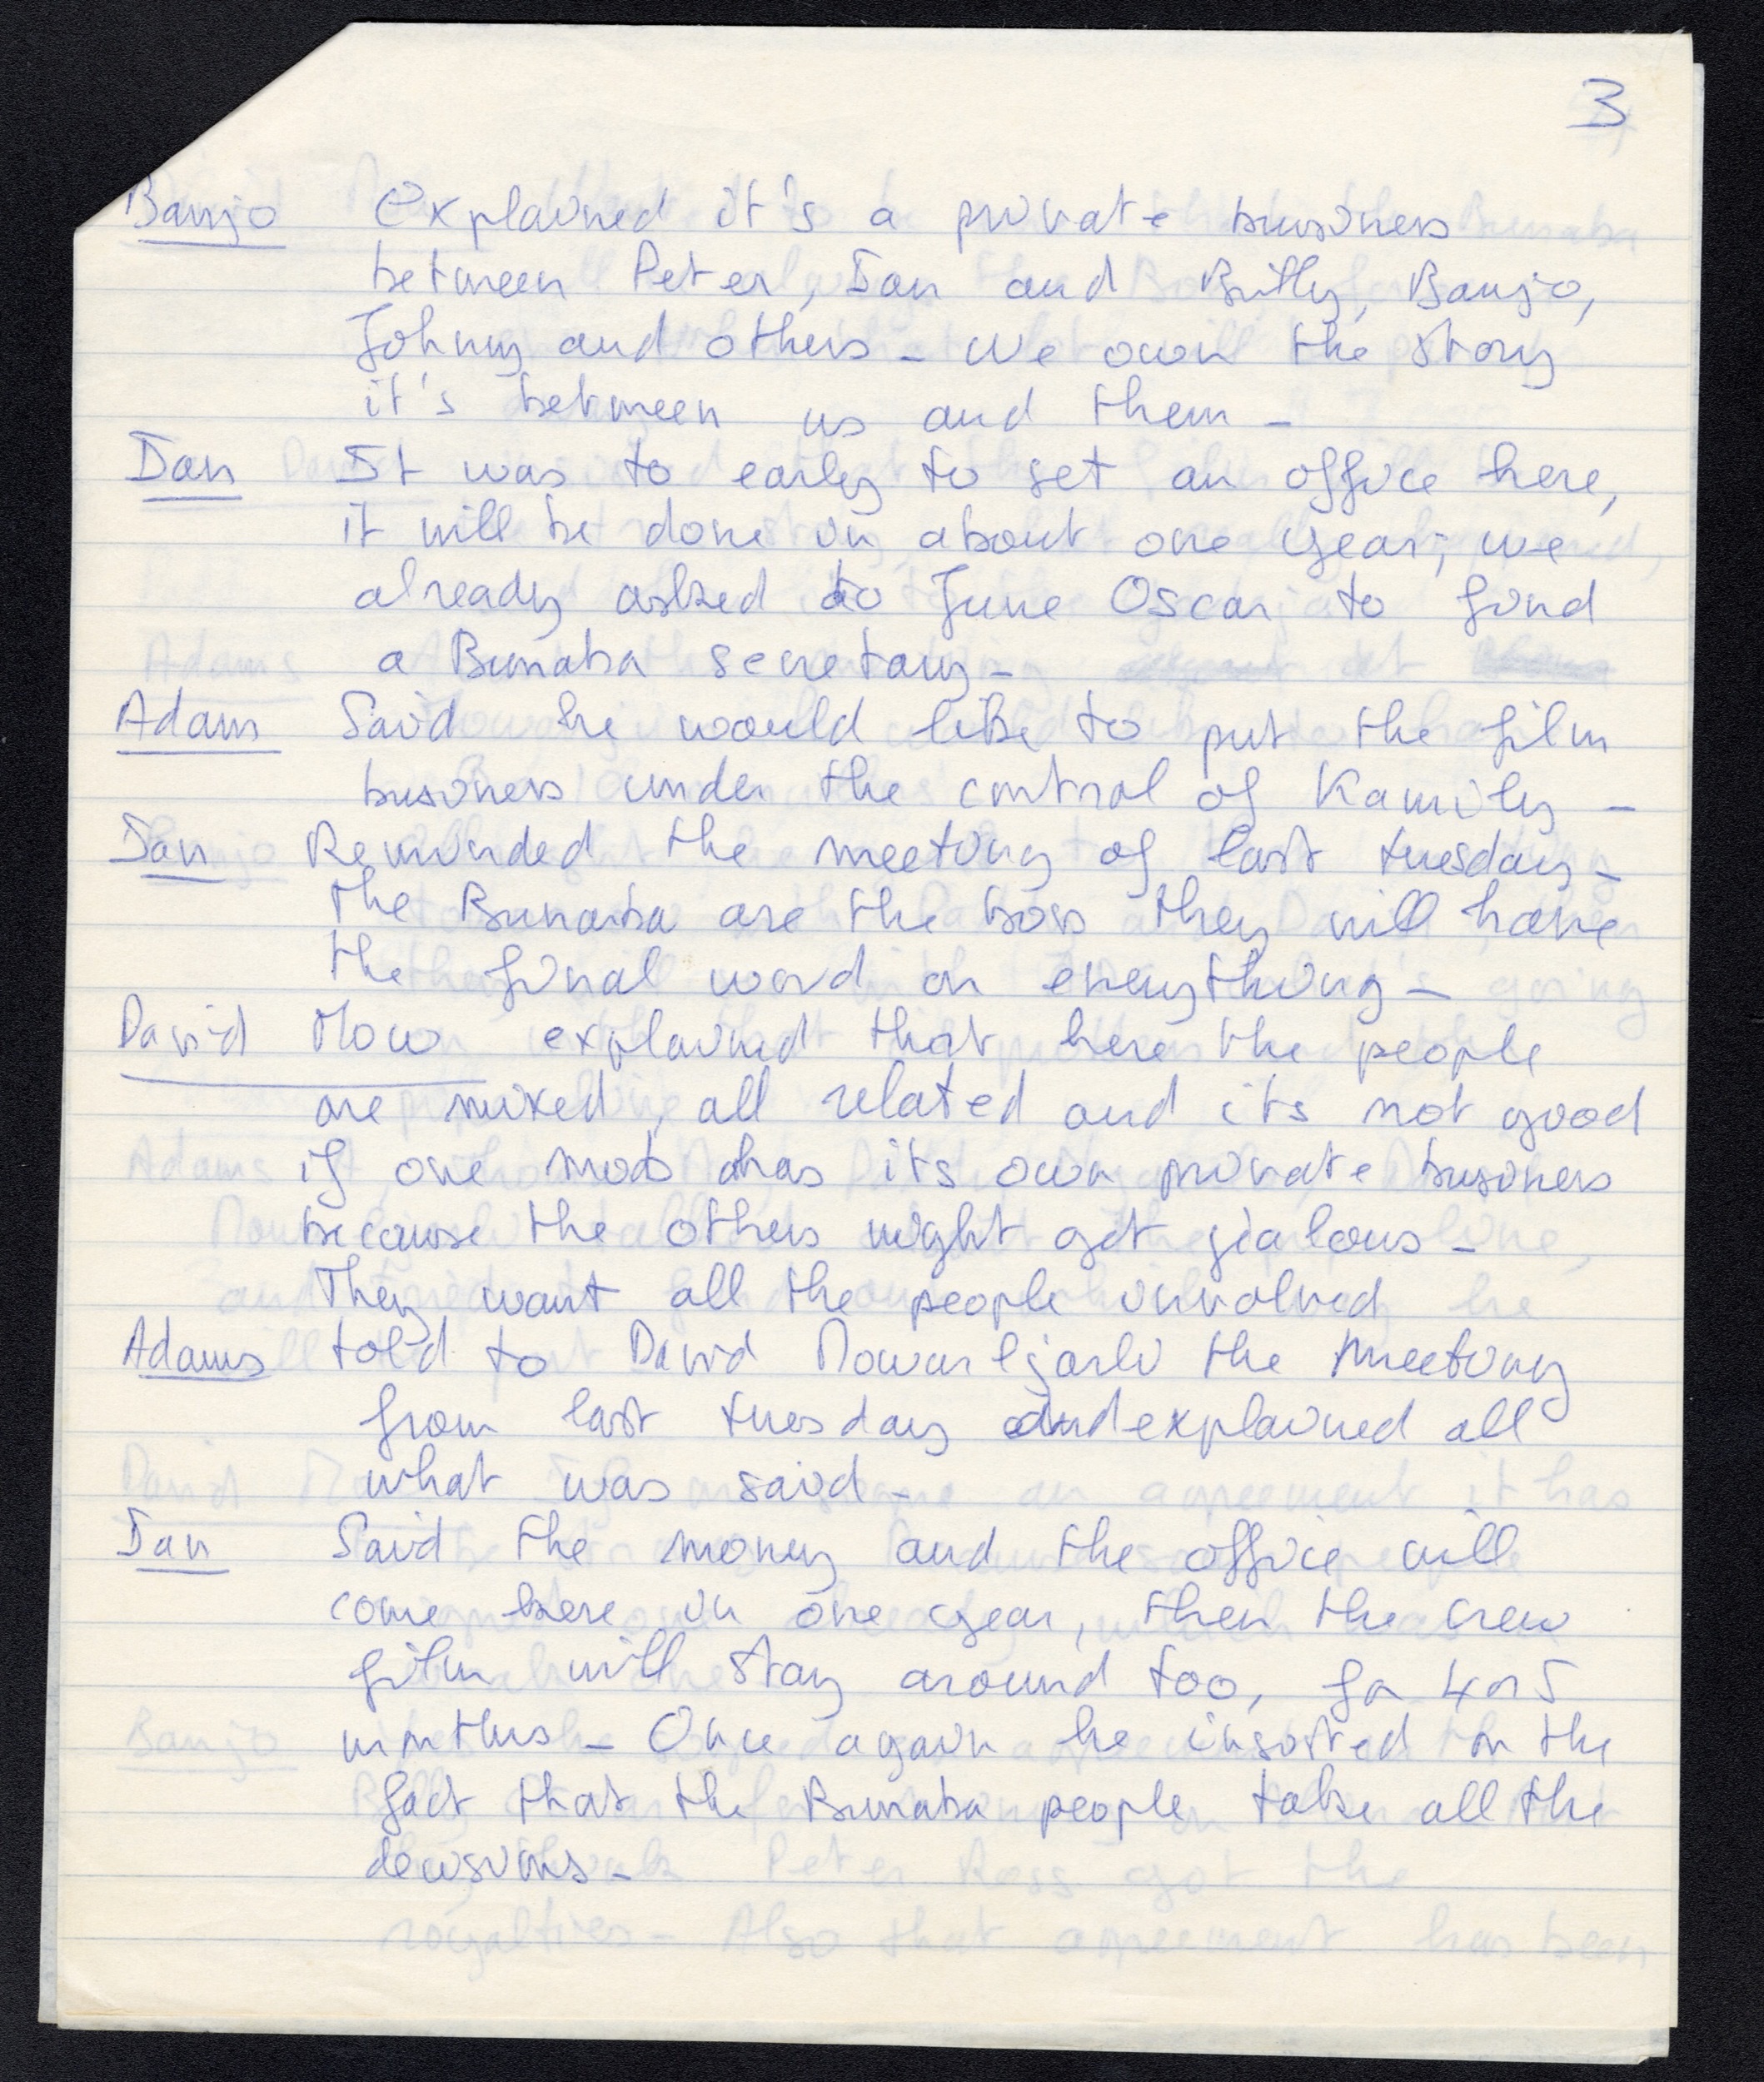 3
Banjo explained it's a private business
between Peter, Ian and Billy, Banjo,
Johnny and others - We own the story
it's between us and them -
Ian It was to early to set an office here,
it will be done in about one year; we
already asked to June Oscar to find
a Bunaba secretary -
Adam Said he would like to put the film
business under the control of Kamily -
Ian Reminded the meeting of last tuesday -
The Bunaba are the boss they will have
the final word on everything -
David Mow explained that here the people
are mixed, all related and its not good
if one mob has its own private business
because the others might get jealous -
They want all the people involved
Adams told to David Mowarljarli the meeting
from last tuesday and explained all
what was said -
Ian Said the money and the office will
come here in one year, then the crew
film will stay around too, for 4 or 5
months - Once again he insisted on the
fact that the Bunaba people take all the
decisions -